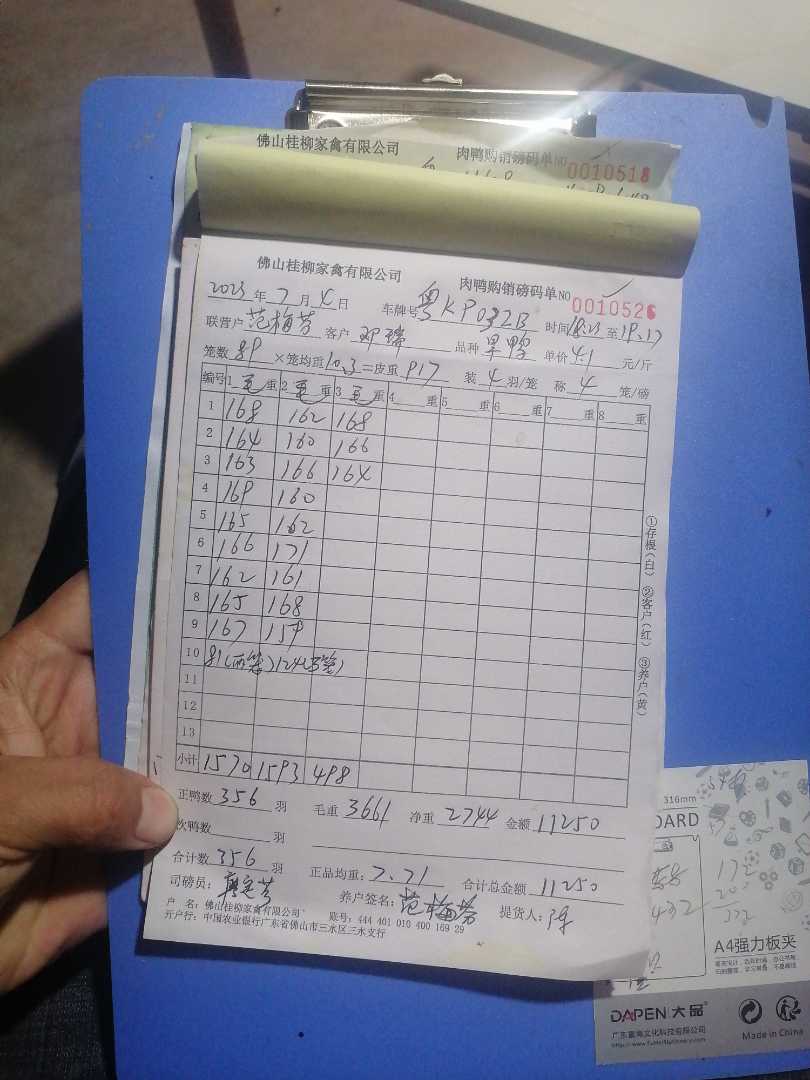 佛山桂柳家禽有限公司 肉鸭购销磅码单NO 0010518
佛山桂柳家禽有限公司 肉鸭购销磅码单NO 0010526
2023年7月4日 车牌号 粤KP032B 时间 18:23 至 19.17
联营户 范梅芬 客户 邓 品种 单价 4.1 元/斤
笼数 89 ×笼均重 10.3 =皮重 917 装 4 羽/笼 称 4 笼/磅
编号 1 毛 重 2 毛 重 3 毛 重 4 重 5 重 6 重 7 重 8 重
1 168 162 168
2 164 160 166
3 163 166 164
4 169 160
5 165 162
6 166 171
7 162 161
8 165 168
9 167 159
10 81(两笼) 124(3笼)
11
12
13
小计 1570 1593 498
正鸭数 356 羽 毛重 3661 净重 2744 金额 11250
次鸭数 羽
合计数 356 羽 正品均重: 7.71 合计总金额 11250
司磅员: 养户签名: 范梅芬 提货人: 陈
户 名: 佛山桂柳家禽有限公司 账号: 444 401 010 400 169 29
开户行: 中国农业银行广东省佛山市三水区三水支行
①存根(白) ②客户(红) ③养户(黄)
316mm
OARD
432
A4强力板夹
DAPEN 大品
广东富海文化科技有限公司
Made in China